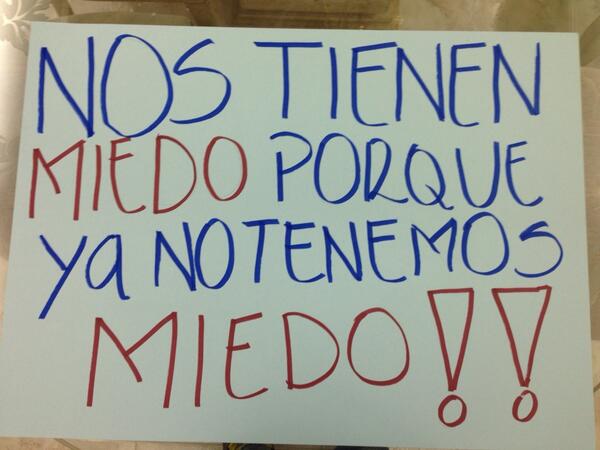 NOS TIENEN
MIEDO PORQUE
ya NO TENEMOS
MIEDO!!